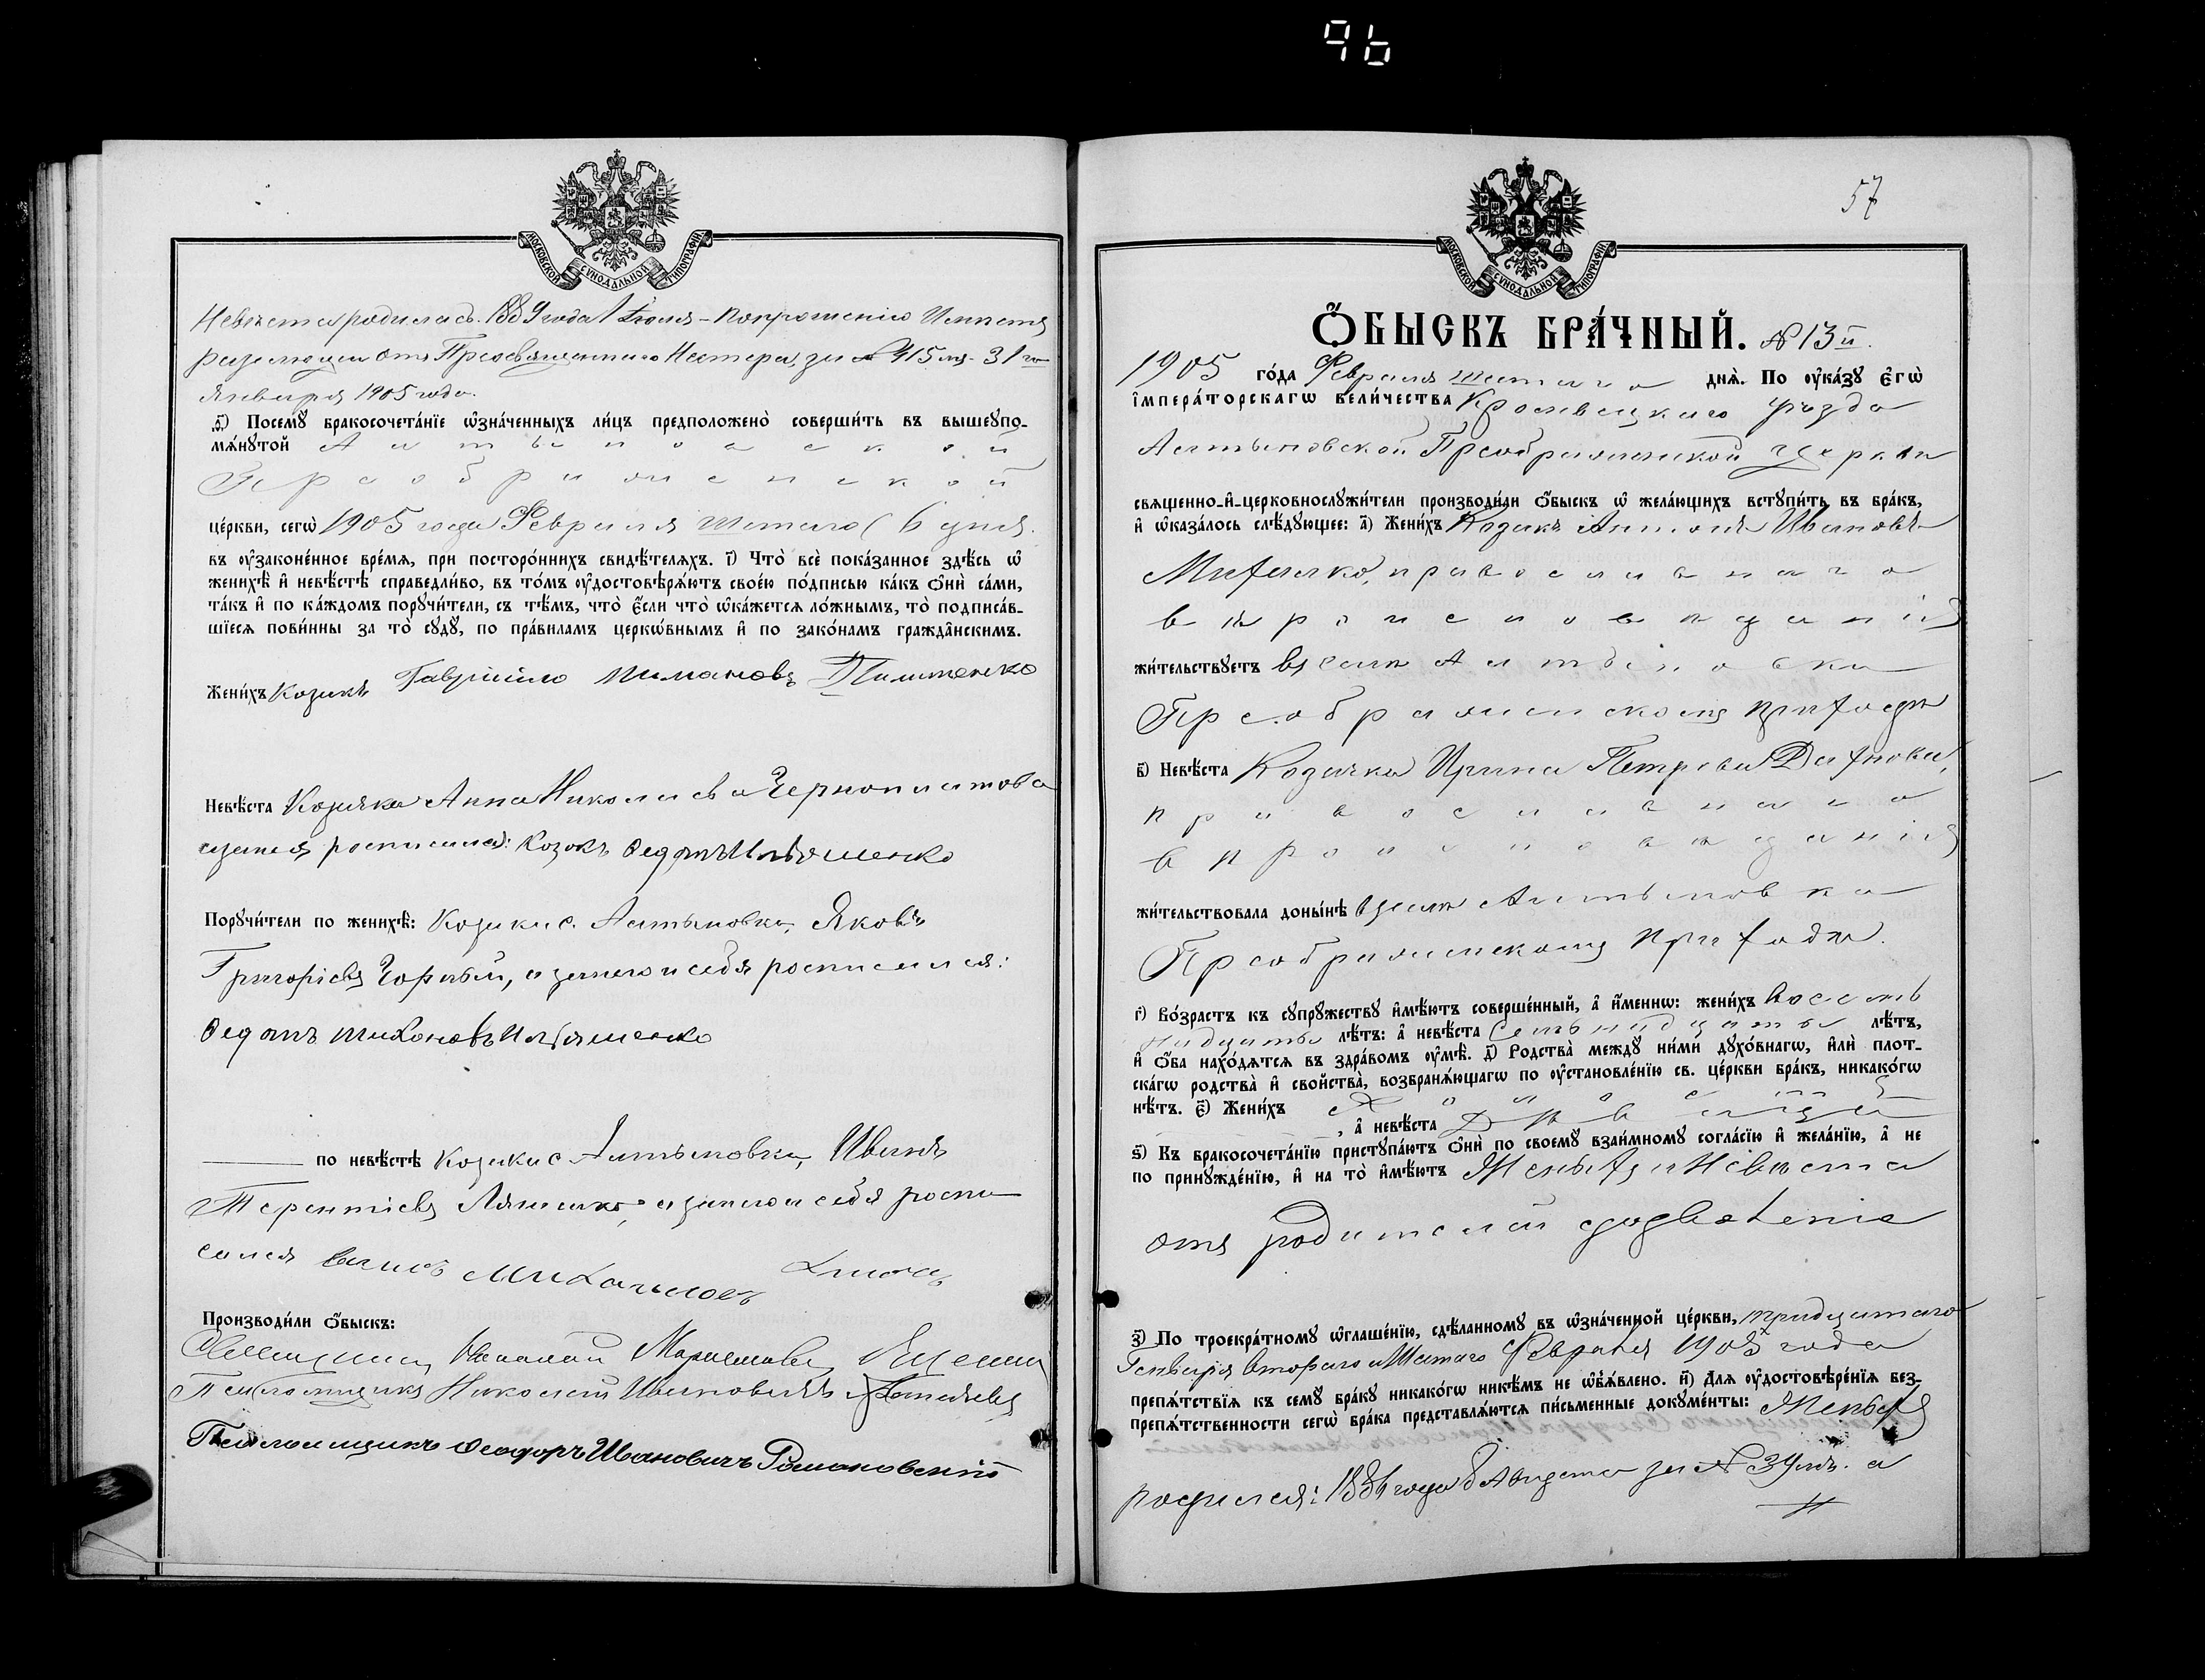 96
МОСКОВСКОЙ СУНОДАЛЬНОЙ ТИПОГРАФІИ
Невеста родилась 1889 года 1 Іюля – по прошенію Имѣетъ
отъ Преосвященнаго Нестера, за № 415мъ 31го
Января 1905 года.
Посемꙋ бракосочета́нїе ѡ҆зна́ченныхъ ли́цъ предположено̀ соверши́ть въ вышеꙋпо-
мѧ́нꙋтой Алтыновской
Преображенской
це́ркви, сегѡ̀ 1905 года Февраля шестаго (6 дня.
въ ᲂу҆законе́нное вре́мѧ, при посторо́ннихъ свидѣ́телѧхъ. і҃) Что̀ всѐ пока́занное здѣ́сь ѡ҆
женихѣ̀ и҆ невѣ́стѣ справедли́во, въ то́мъ ᲂу҆достовѣрѧ́ютъ свое́ю по́дписью ка́къ ѻ҆нѝ са́ми,
та́къ и҆ по ка́ждомъ порꙋчи́тели, съ тѣ́мъ, что̀ є҆́сли что̀ ѡ҆ка́жетсѧ ло́жнымъ, то̀ подписа́в-
шїесѧ пови́нны за то̀ сꙋдꙋ̀, по пра́виламъ церкѡ́внымъ и҆ по зако́намъ гражда̑нскимъ.
Жени́хъ Козакъ Гавріило Пилипенко
Невѣ́ста Козачка Анна Николаева Чернопятова
а за нея росписался: Козакъ Ѳедотъ Ильяшенко
Порꙋчи́тели по женихѣ̀: Козаки с. Алтыновки, Яковъ
Григоріевъ Чорный, а за него и себя росписался:
Ѳедотъ Тихоновъ Ильяшенко
по невѣ́стѣ Козаки с. Алтыновки, Иванъ
Терентіевъ Ляшенко, а за него и себя роспи
сался Михайловъ
Производи́ли ѻ҆́быскъ:
Священникъ
Псаломщикъ Николай Ивановичъ
Псаломщикъ Ѳеодоръ Ивановичъ Романовскій
57
МОСКОВСКОЙ СУНОДАЛЬНОЙ ТИПОГРАФІИ
Ѻ҆́БЫСКЪ БРА́ЧНЫЙ. № 13й.
1905 го́да Февраля шестаго днѧ̀. По ᲂу҆ка́зꙋ є҆гѡ̀
і҆мпера́торскагѡ вели́чества Кролевецкаго уѣзда
Алтыновской Преображенской церкви
свѧщенно-и҆-церковнослꙋжи́тели производи́ли ѻ҆́быскъ ѡ҆ жела́ющихъ встꙋпи́ть въ бра́къ,
и҆ ѡ҆каза́лось слѣ́дꙋющее: а҃) Жени́хъ Козакъ Антонъ Ивановъ
православнаго
вѣроисповѣданія
жи́тельствꙋетъ въ селѣ Алтыновки
Преображенскомъ приходѣ
в҃) Невѣ́ста Козачка Ирина Петрова
православнаго
вѣроисповѣданія
жи́тельствовала доны́нѣ въ селѣ Алтыновки
Преображенскомъ приходѣ.
г҃) Во́зрастъ къ сꙋпрꙋ́жествꙋ и҆мѣ́ютъ соверше́нный, а҆ и҆́меннѡ: жени́хъ восем
надцать лѣ́тъ: а҆ невѣ́ста семьнадцать лѣ́тъ,
и҆ ѻ҆́ба нахо́дѧтсѧ въ здра́вомъ ᲂу҆мѣ̀. д҃) Родства̀ междꙋ ни́ми дꙋхо́внагѡ, и҆лѝ плот-
ска́гѡ родства̀ и҆ сво́йства, возбранѧ́ющагѡ по ᲂу҆становле́нїю св. це́ркви бра́къ, никако́гѡ
нѣ́тъ. є҃) Жени́хъ холостъ, а҆ невѣ́ста дѣвица
ѕ҃) Къ бракосочета́нїю пристꙋпа́ютъ ѻ҆нѝ по своемꙋ̀ взаи́мномꙋ согла́сїю и҆ жела́нїю, а҆ не
по принꙋжде́нїю, и҆ на то̀ и҆мѣ́ютъ Женихъ и Невеста
отъ родителей дозволеніе
з҃) По троекра́тномꙋ ѡ҆глаше́нїю, сдѣ́ланномꙋ въ ѡ҆зна́ченной це́ркви, тридцатаго
Генваря втораго и Шестаго Февраля 1905 года
препѧ́тствїѧ къ семꙋ̀ бра́кꙋ никако́гѡ никѣ́мъ не ѡ҆б̾ѧ́влено. и҃) Длѧ ᲂу҆достовѣре́нїѧ без-
препѧ́тственности сегѡ̀ бра́ка представлѧ́ютсѧ пи́сьменные докꙋме́нты: Женихъ
родился: 1886 года 8 Августа за № 39мъ. а